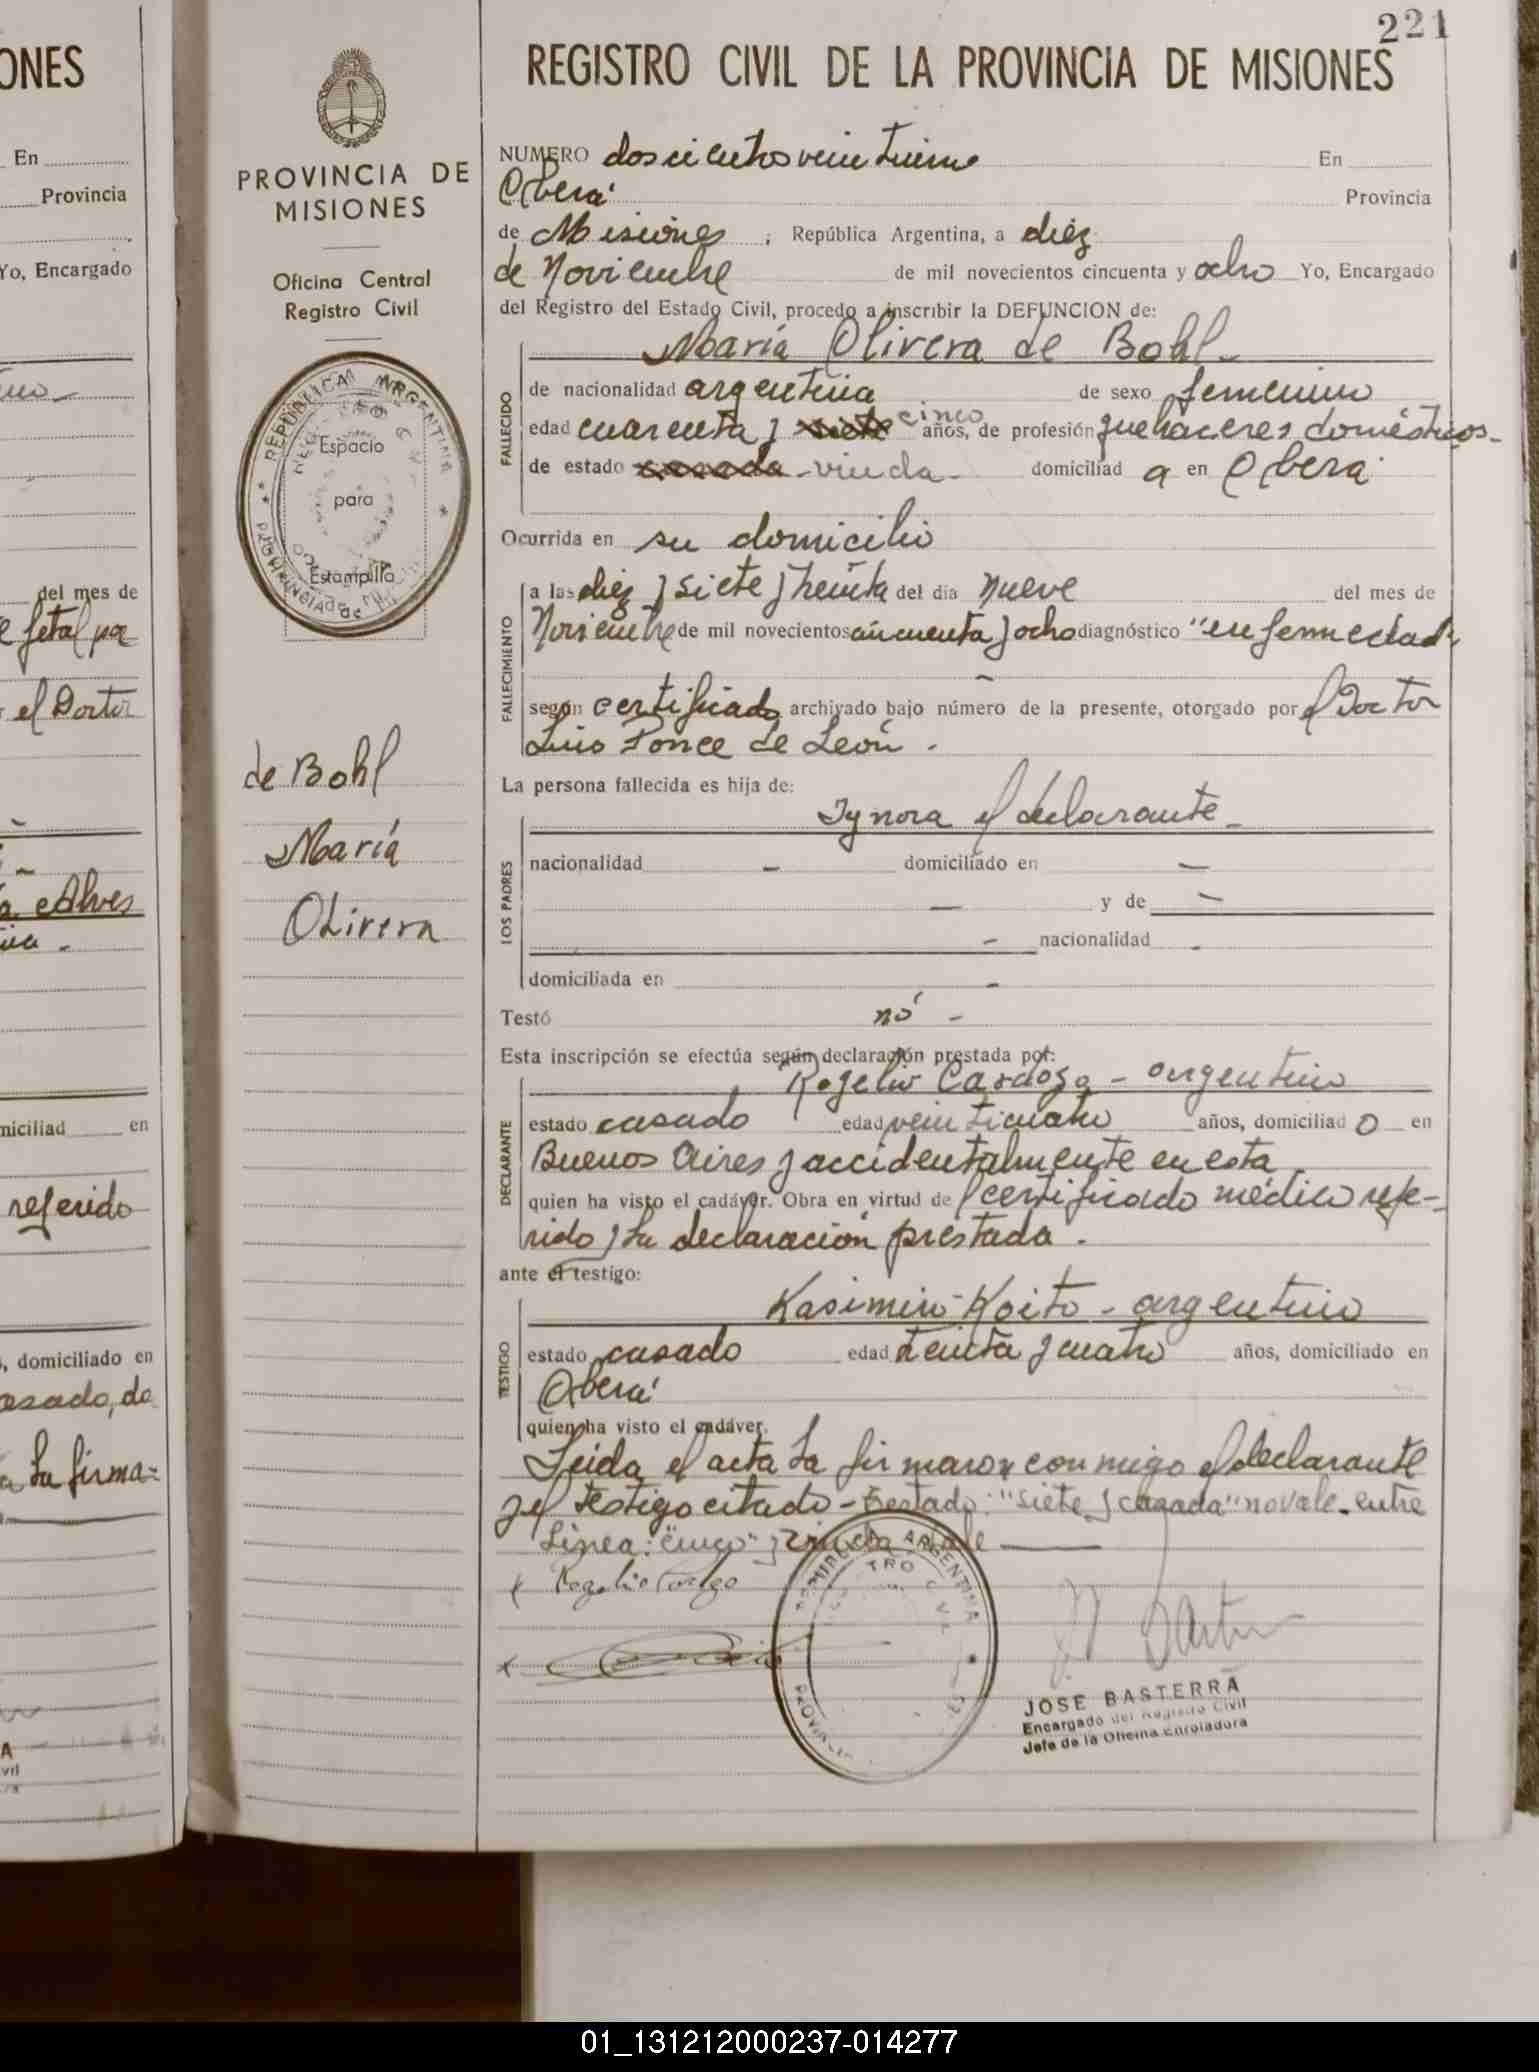 221
REGISTRO CIVIL DE LA PROVINCIA DE MISIONES
NUMERO doscientos veintiuno En
Oberá Provincia
de Misiones ; República Argentina, a diez
de Noviembre de mil novecientos cincuenta y ocho Yo, Encargado
del Registro del Estado Civil, procedo a inscribir la DEFUNCION de:
María Olivera de Bohl
FALLECIDO
de nacionalidad argentina de sexo femenino
edad cuarenta y siete cinco años, de profesión quehaceres domésticos-
de estado casada viuda- domiciliad a en Oberá
Ocurrida en su domicilio
FALLECIMIENTO
a las diez y siete y treinta del día nueve del mes de
Noviembre de mil novecientos cincuenta y ocho diagnóstico "enfermedad"
según certificado archivado bajo número de la presente, otorgado por el Doctor
Luis Ponce de León.
La persona fallecida es hija de:
Ignora el declarante-
LOS PADRES
nacionalidad - domiciliado en -
- y de -
- nacionalidad -
domiciliada en -
Testó nó -
Esta inscripción se efectúa según declaración prestada por:
Rogelio Cardozo - argentino
DECLARANTE
estado casado edad veinticuatro años, domiciliad o en
Buenos Aires y accidentalmente en esta
quien ha visto el cadáver. Obra en virtud del certificado médico refe-
rido y la declaración prestada.
ante el testigo:
Kasimiro Koito - argentino
TESTIGO
estado casado edad treinta y cuatro años, domiciliado en
Oberá
quien ha visto el cadáver.
Leida el acta la firmaron conmigo el declarante
y el testigo citado - Testado: "siete y casada" no vale. entre
Línea: "cinco" y viuda vale
x
x
REPUBLICA ARGENTINA
PROVINCIA
JOSE BASTERRA
Encargado del Registro Civil
Jefe de la Oficina Enroladora
PROVINCIA DE
MISIONES
Oficina Central
Registro Civil
REPUBLICA ARGENTINA
Espacio
para
Estampilla
de Bohl
María
Olivera
ONES
En
Provincia
Yo, Encargado
del mes de
fetal por
el Doctor
Alves
niciliad en
referido
, domiciliado en
casado, de
la firma-
01_131212000237-014277